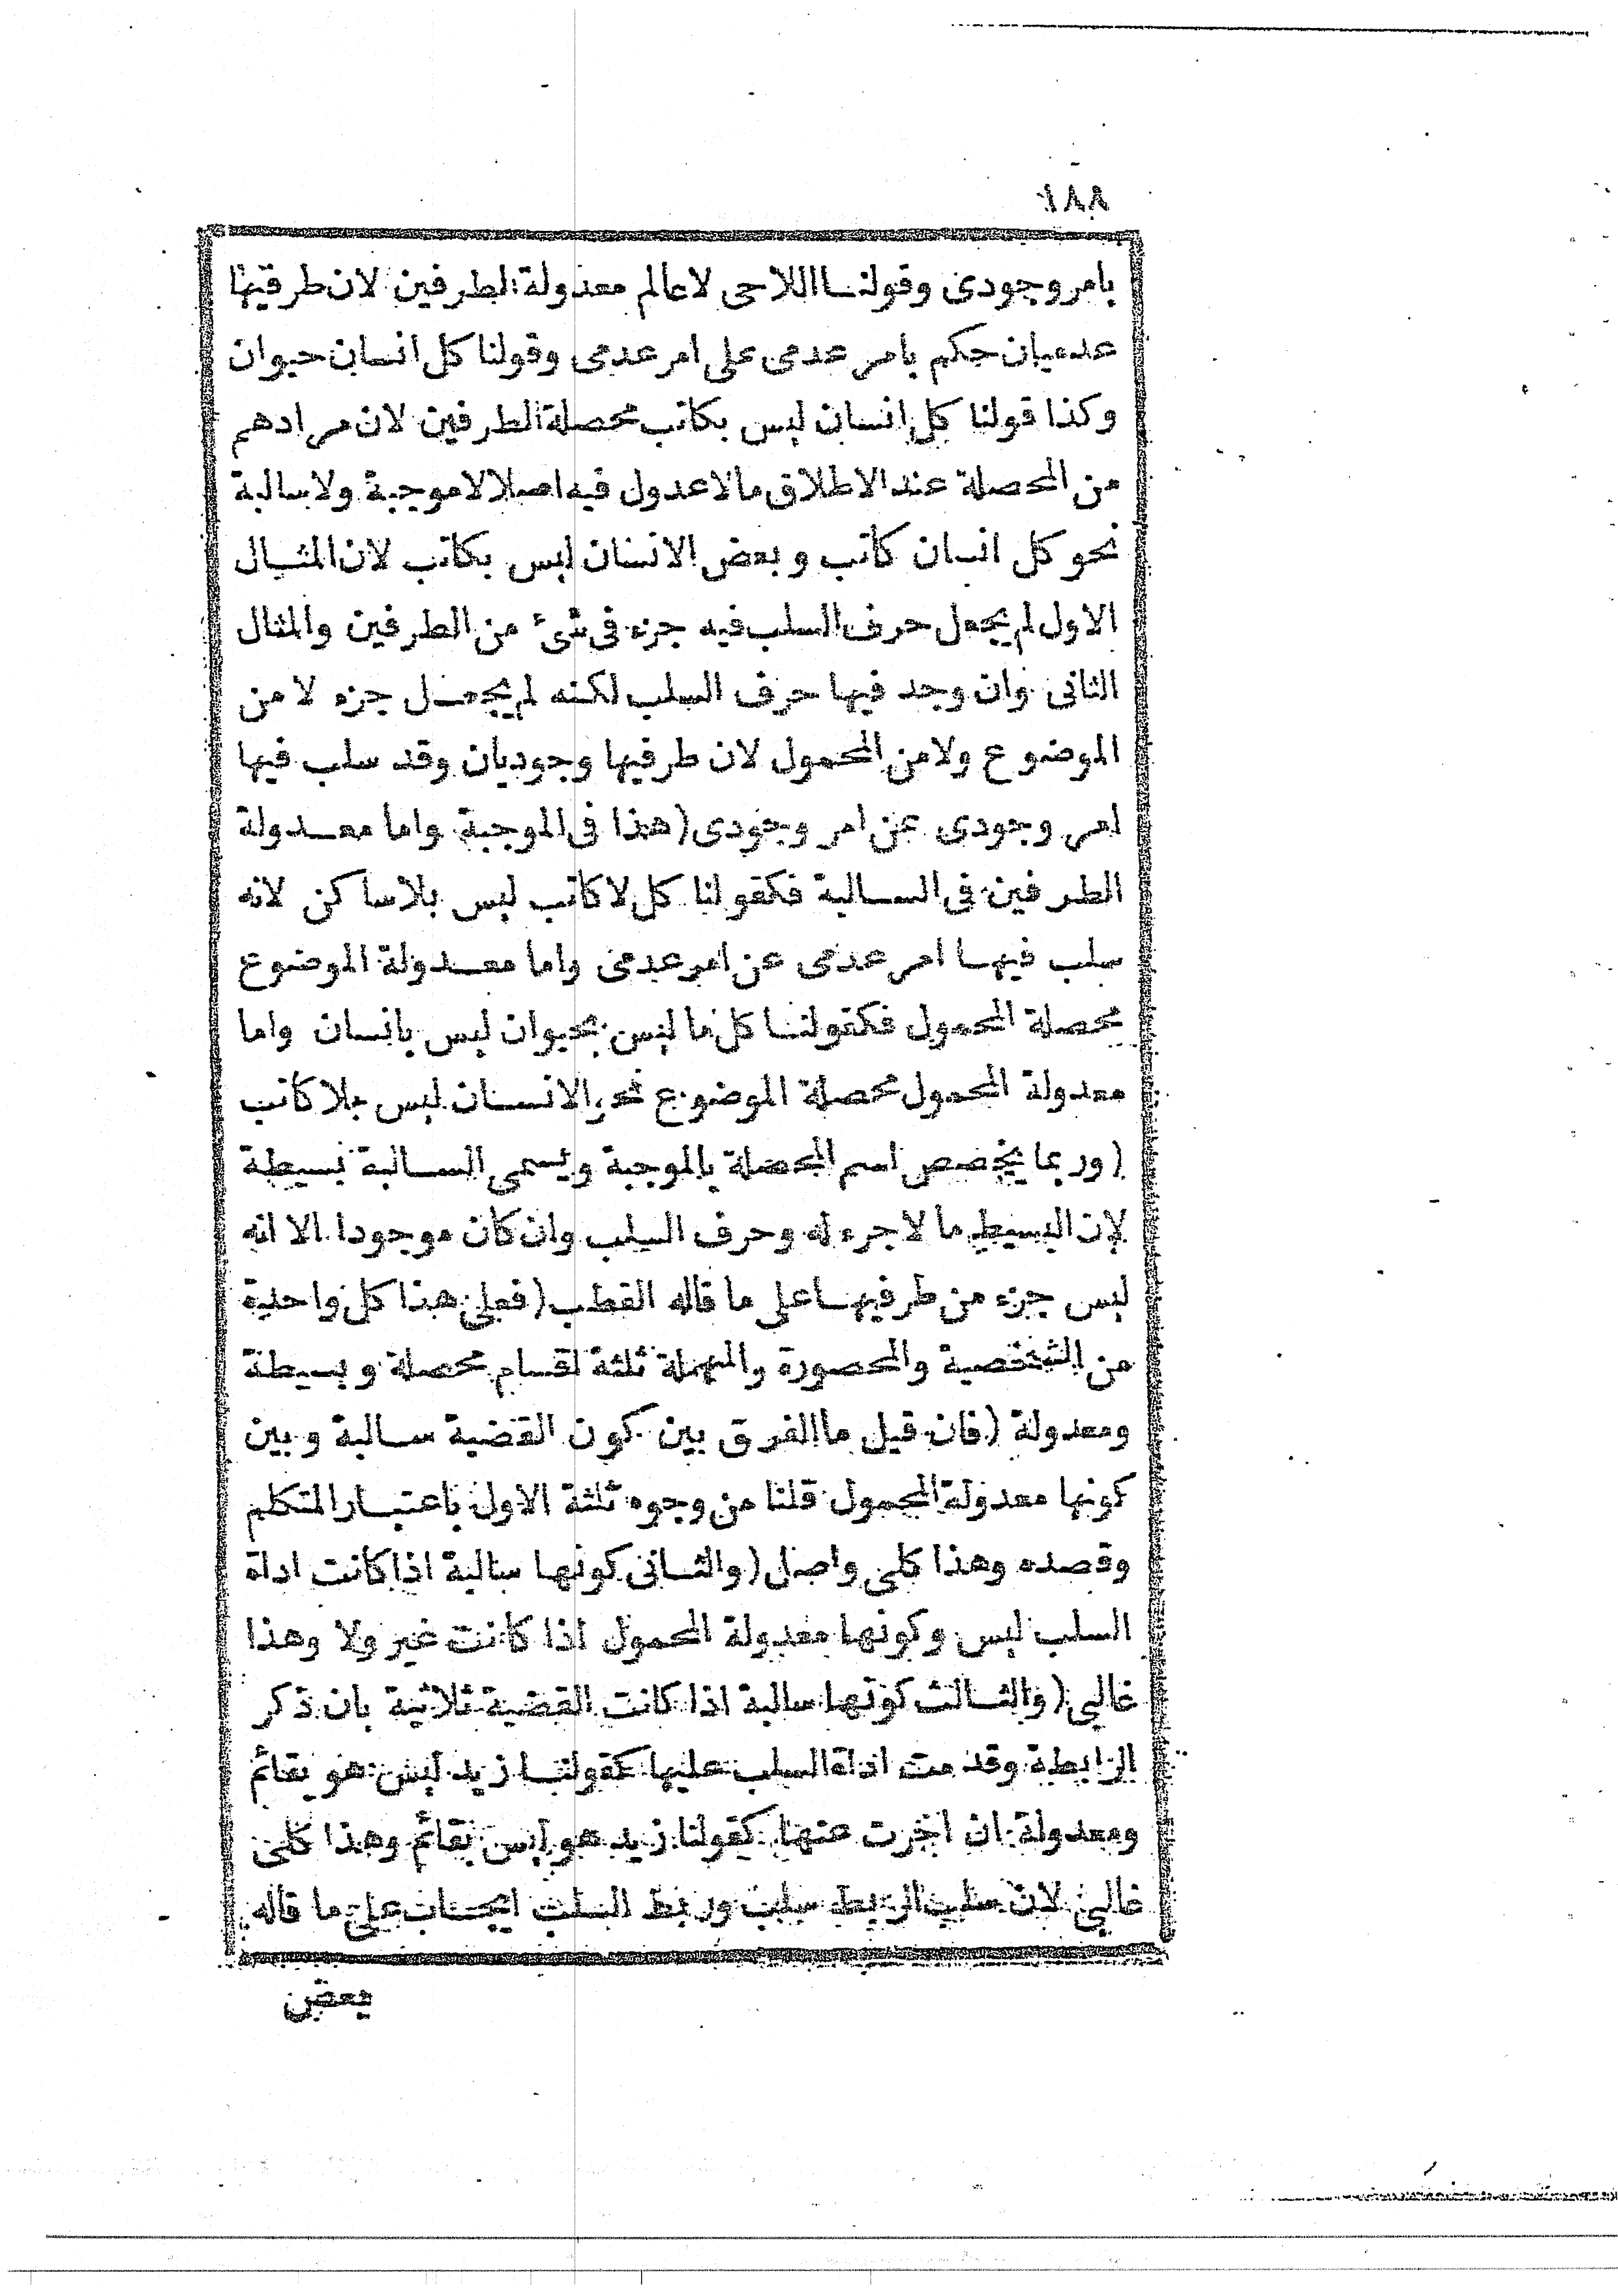 ١٨٨
بامر وجودى وقولنا اللاحى لاعالم معدولة الطرفين لان طرفيها
عدميان حكم بامر عدمى على امر عدمى وقولنا كل انسان حيوان
وكذا قولنا كل انسان ليس بكاتب محصلة الطرفين لان مرادهم
من المحصلة عند الاطلاق مالاعدول فيه اصلا لاموجبة ولاسالبة
نحو كل انسان كاتب وبعض الانسان ليس بكاتب لان المثال
الاول لم يجعل حرف السلب فيه جزء فى شئ من الطرفين والمثال
الثانى وان وجد فيها حرف السلب لكنه لم يجعل جزء لا من
الموضوع ولامن المحمول لان طرفيها وجوديان وقد سلب فيها
امر وجودى عن امر وجودى (هذا فى الموجبة واما معدولة
الطرفين فى السالبة فكقولنا كل لاكاتب ليس بلاساكن لانه
سلب فيها امر عدمى عن امر عدمى واما معدولة الموضوع
محصلة المحمول فكقولنا كل ما ليس بحيوان ليس بانسان واما
معدولة المحمول محصلة الموضوع نحو الانسان ليس بلاكاتب
(وربما يخصص اسم المحصلة بالموجبة ويسمى السالبة بسيطة
لان البسيط ما لا جزء له وحرف السلب وان كان موجودا الا انه
ليس جزء من طرفيها على ما قاله القطب (فعلى هذا كل واحدة
من الشخصية والمحصورة والمهملة ثلثة اقسام محصلة وبسيطة
ومعدولة (فان قيل ما الفرق بين كون القضية سالبة وبين
كونها معدولة المحمول قلنا من وجوه ثلثة الاول باعتبار المتكلم
وقصده وهذا كلى واصل (والثانى كونها سالبة اذا كانت اداة
السلب ليس وكونها معدولة المحمول اذا كانت غير ولا وهذا
غالبى (والثالث كونها سالبة اذا كانت القضية ثلاثية بان ذكر
الرابطة وقدمت اداة السلب عليها كقولنا زيد ليس هو بقائم
ومعدولة ان اخرت عنها كقولنا زيد هو ليس بقائم وهذا كلى
غالبى لان سلب الربط سلب وربط السلب ايجاب على ما قاله
بعض